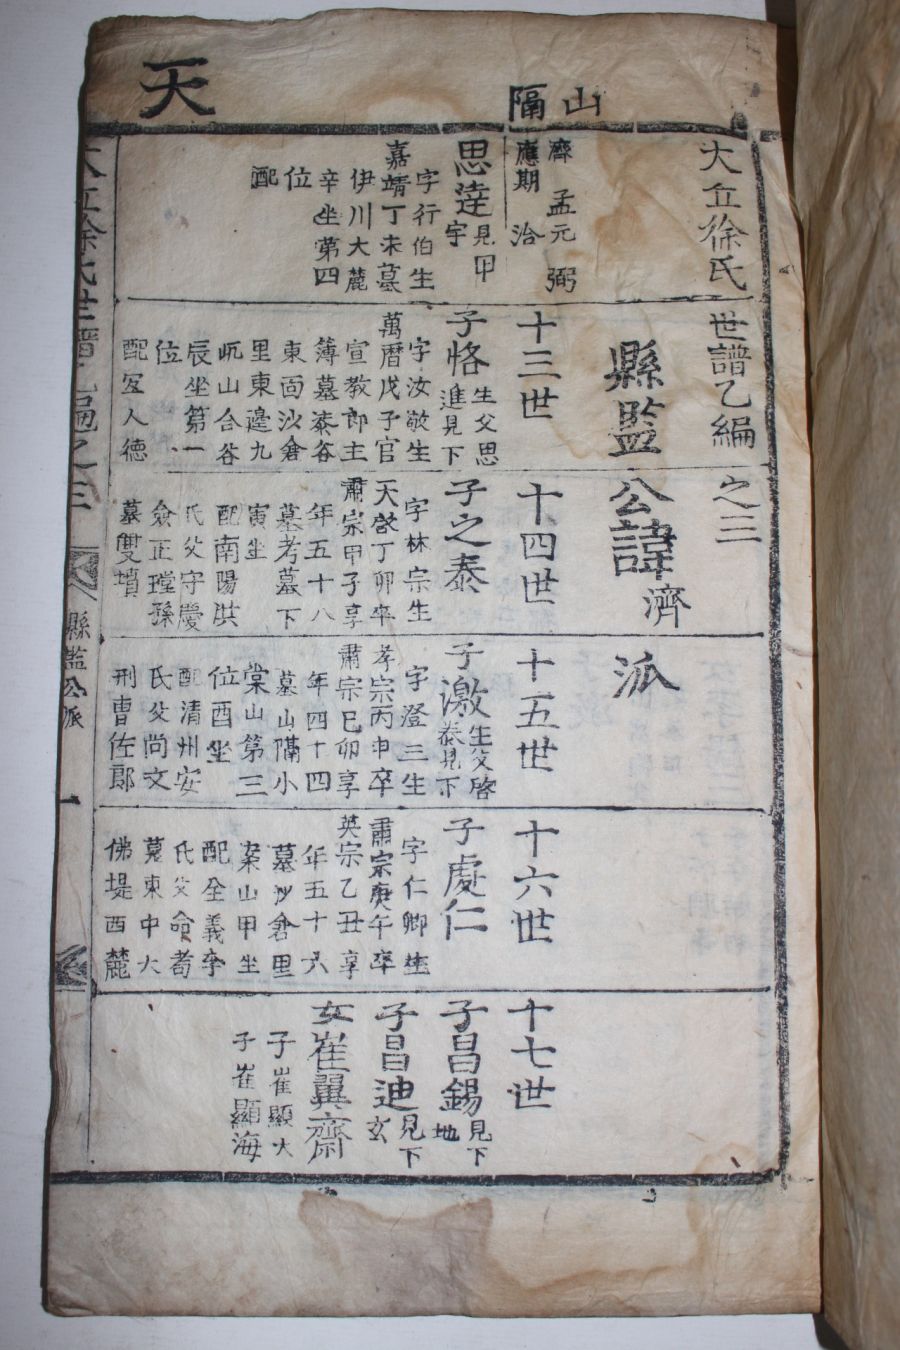 天
山隔
大丘徐氏世譜乙編之三
縣監公諱濟派
濟 孟元 弼
應期 洽
思達見甲字
字行伯生
嘉靖丁未墓
伊川大麓
辛坐第四
位
配
十三世
子恪生父思進見下
字汝敬生
萬曆戊子官
宣教郎主
簿墓泰谷
東面沙倉
里東邊九
屹山合谷
辰坐第一
位
配宜人德
十四世
子之泰
字林宗生
天啓丁卯卒
肅宗甲子享
年五十八
墓考墓下
寅坐
配南陽洪
氏父守慶
僉正瑩孫
墓雙墳
十五世
子激生父啓泰見下
字澄三生
孝宗丙申卒
肅宗己卯享
年四十四
墓山隔小
棠山第三
位酉坐
配清州安
氏父尚文
刑曹佐郎
十六世
子處仁
字仁卿生
肅宗庚午卒
英宗乙丑享
年五十六
墓沙倉里
案山甲坐
配全義李
氏父命耉
墓東中大
佛堤西麓
十七世
子昌錫見下地
子昌迪見下玄
女崔翼齋
子崔顯大
子崔顯海
縣監公派 一